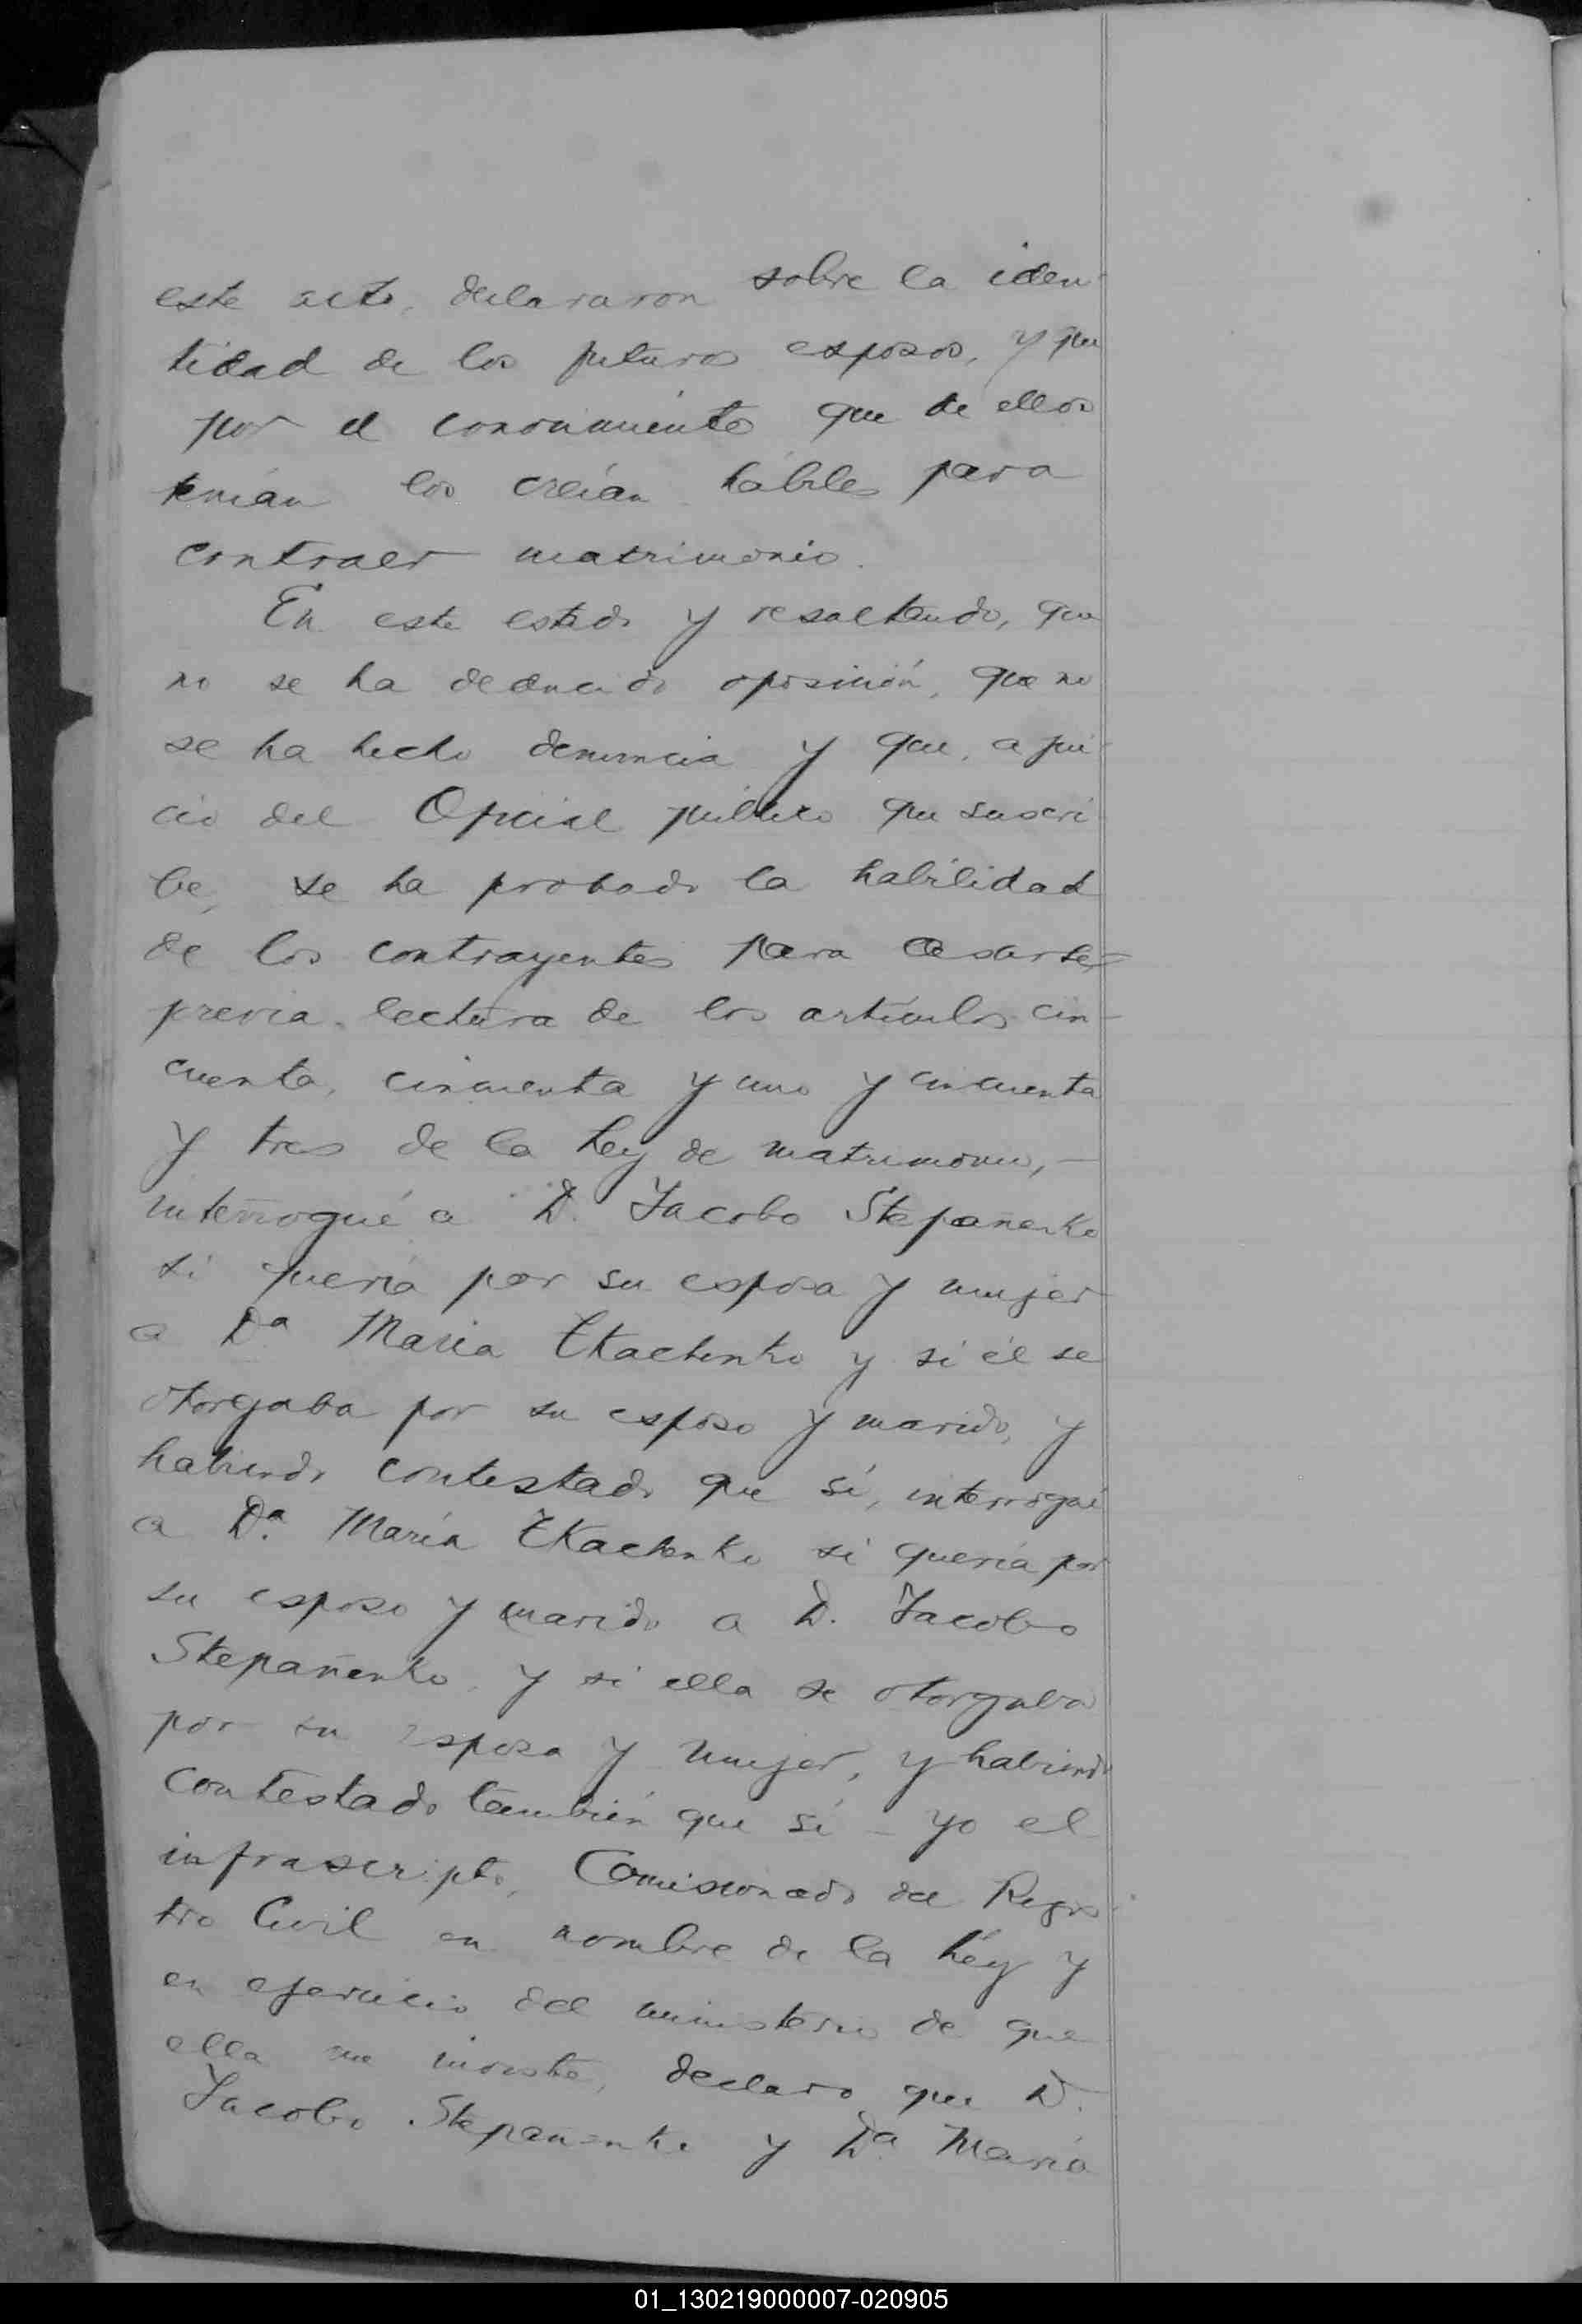 este acto, declararon sobre la iden-
tidad de los futuros esposos, y que
por el conocimiento que de ellos
tenían los creían hábiles para
contraer matrimonio.
En este estado y resultando, que
no se ha deducido oposición, que no
se ha hecho denuncia y que, a jui-
cio del Oficial público que suscri
be, se ha probado la habilidad
de los contrayentes para casarse,
previa lectura de los artículos cin-
cuenta, cincuenta y uno y cincuenta
y tres de la Ley de matrimonio, —
interrogué a D. Jacobo Stepañenko
si quería por su esposa y mujer
a Da. Maria Tkachenko y si él se
otorgaba por su esposo y marido, y
habiendo contestado que sí, interrogué
a Da. María Tkachenko si quería por
su esposo y marido a D. Jacobo
Stepañenko, y si ella se otorgaba
por su esposa y mujer, y habiendo
contestado también que sí — yo el
infrascripto, Comisionado del Regis-
tro Civil en nombre de la Ley y
en ejercicio del ministerio de que
ella me inviste, declaro que D.
Jacobo Stepanenko y Da. María
01_130219000007-020905